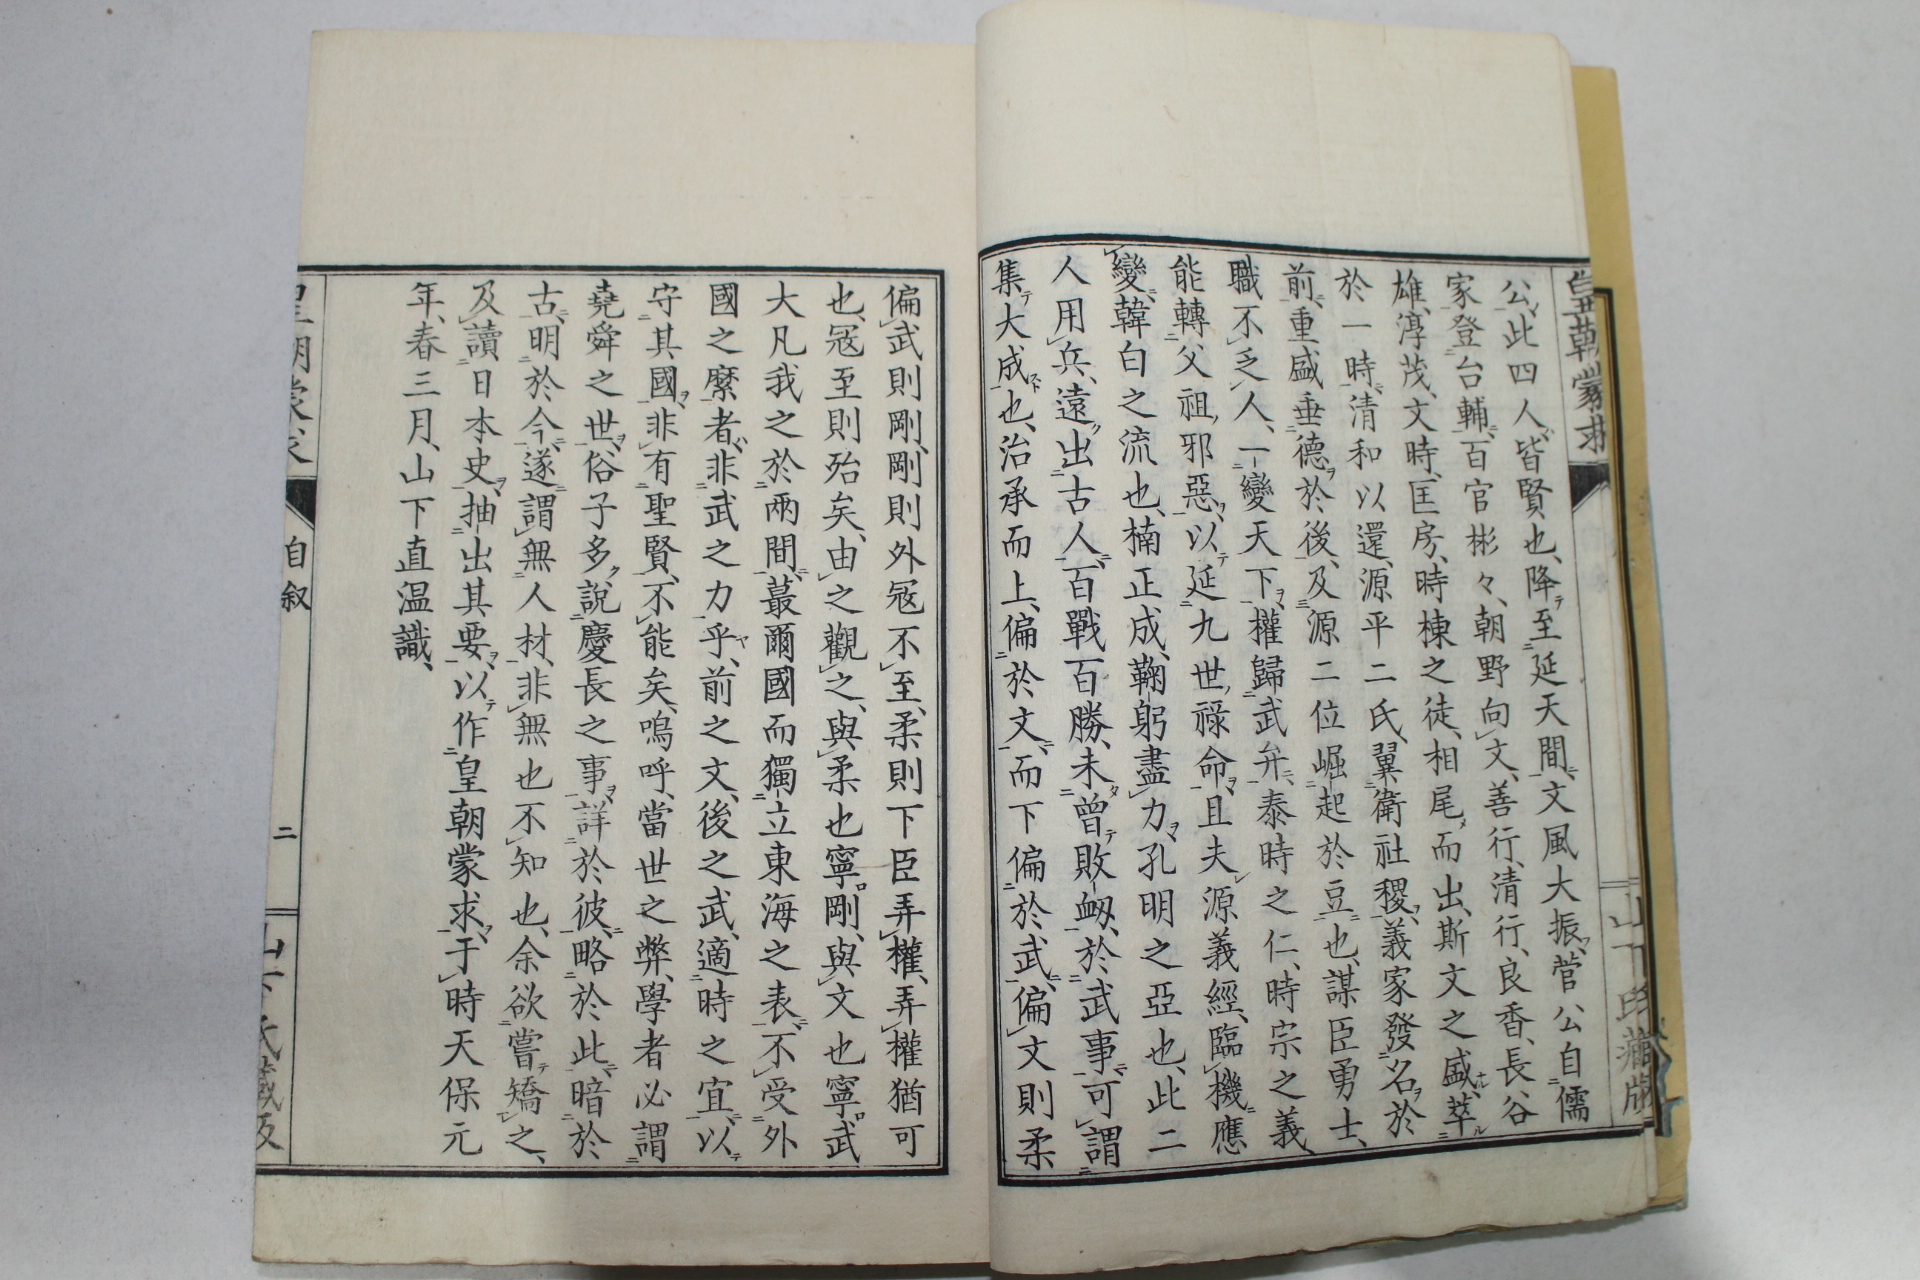 皇朝蒙求
山下氏藏版
公此四人皆賢也、降至延天間、文風大振、菅公自儒
家登台輔、百官彬々、朝野向文、善行、清行、良香、長谷
雄、淳茂、文時、匡房、時棟之徒、相尾而出、斯文之盛、萃
於一時、清和以還、源平二氏、翼衛社稷、義家發名於
前、重盛垂德於後、及源二位崛起於豆也、謀臣勇士、
職不乏人、一變天下、權歸武弁、泰時之仁、時宗之義、
能轉父祖邪惡、以延九世祿命、且夫源義經、臨機應
變、韓白之流也、楠正成、鞠躬盡力、孔明之亞也、此二
人用兵、遠出古人、百戰百勝、未曾敗衂、於武事、可謂
集大成也、治承而上、偏於文、而下偏於武、偏文則柔
偏武則剛、剛則外寇不至、柔則下臣弄權、弄權猶可
也、寇至則殆矣、由之觀之、與柔也寧剛、與文也寧武
大凡我之於兩間、蕞爾國而獨立東海之表、不受外
國之縻者、非武之力乎、前之文、後之武、適時之宜、以
守其國、非有聖賢、不能矣、嗚呼、當世之弊、學者必謂
堯舜之世、俗子多說慶長之事、詳於彼、略於此、暗於
古、明於今、遂謂無人材、非無也、不知也、余欲嘗矯之、
及讀日本史、抽出其要、以作皇朝蒙求、于時天保元
年、春三月、山下直温識、
皇朝蒙求
自叙
二
山下氏藏版